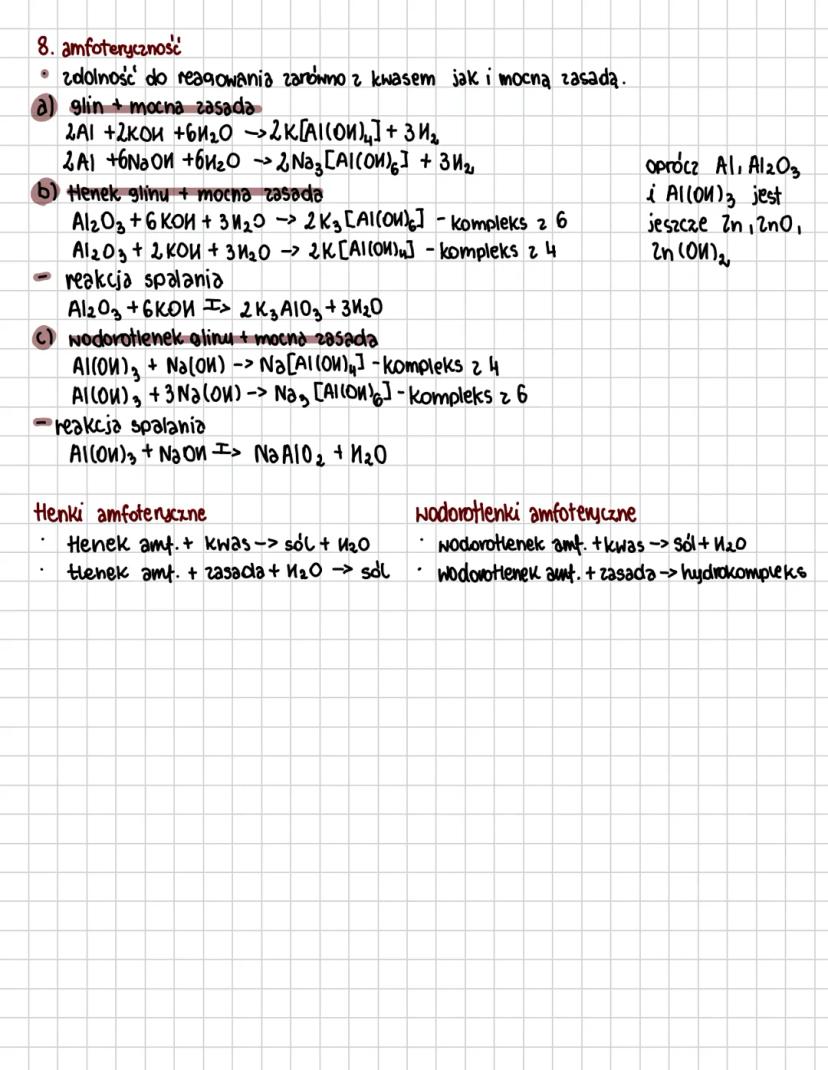 8. amfoteryczność
• zdolność do reagowania zarówno z kwasem jak i mocną zasadą.
a) glin + mocna zasada
2Al + 2KOH + 6H₂O -> 2K[Al(OH)₄] + 3H₂
2Al + 6NaOH + 6H₂O -> 2Na₃[Al(OH)₆] + 3H₂
b) tlenek glinu + mocna zasada
Al₂O₃ + 6KOH + 3H₂O -> 2K₃[Al(OH)₆] - kompleks z 6
Al₂O₃ + 2KOH + 3H₂O -> 2K[Al(OH)₄] - kompleks z 4
- reakcja spalania
Al₂O₃ + 6KOH T> 2K₃AlO₃ + 3H₂O
c) wodorotlenek glinu + mocna zasada
Al(OH)₃ + Na(OH) -> Na[Al(OH)₄] - kompleks z 4
Al(OH)₃ + 3Na(OH) -> Na₃[Al(OH)₆] - kompleks z 6
- reakcja spalania
Al(OH)₃ + NaOH T> NaAlO₂ + H₂O
oprócz Al, Al₂O₃
i Al(OH)₃ jest
jeszcze Zn, ZnO,
Zn(OH)₂
tlenki amfoteryczne
· tlenek amf. + kwas -> sól + H₂O
· tlenek amf. + zasada + H₂O -> sól
wodorotlenki amfoteryczne
· wodorotlenek amf. + kwas -> sól + H₂O
· wodorotlenek amf. + zasada -> hydrokompleks